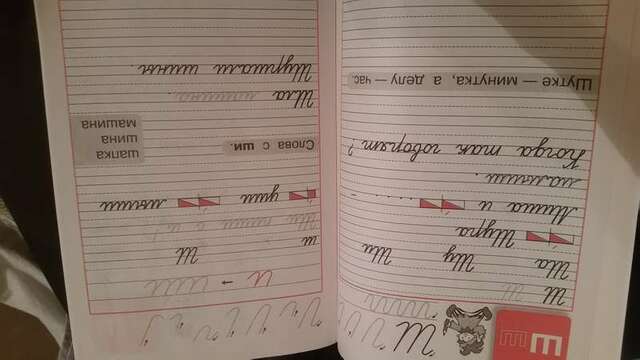 Шш
Ш
Ш
Ша Шу Ши
Шура
Миша и
малыши.
Когда так говорят?
Шутке — минутка, а делу — час.
И → Ш
ш Ш
уши мыши
Слова с ши.
шапка
шина
машина
Шла машина.
Шуршали шины.